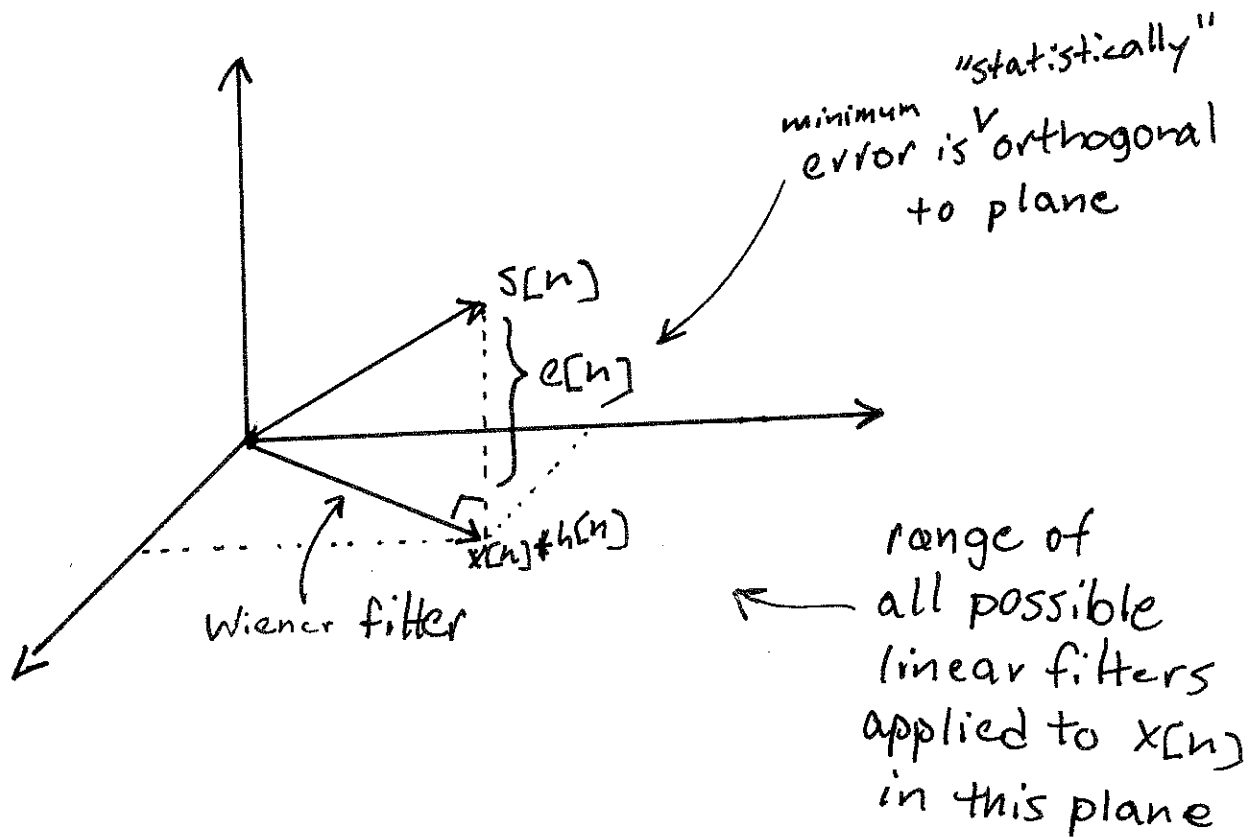 "statistically"
minimum
error is orthogonal
to plane
s[n]
e[n]
x[n]*h[n]
Wiener filter
range of
all possible
linear filters
applied to x[n]
in this plane